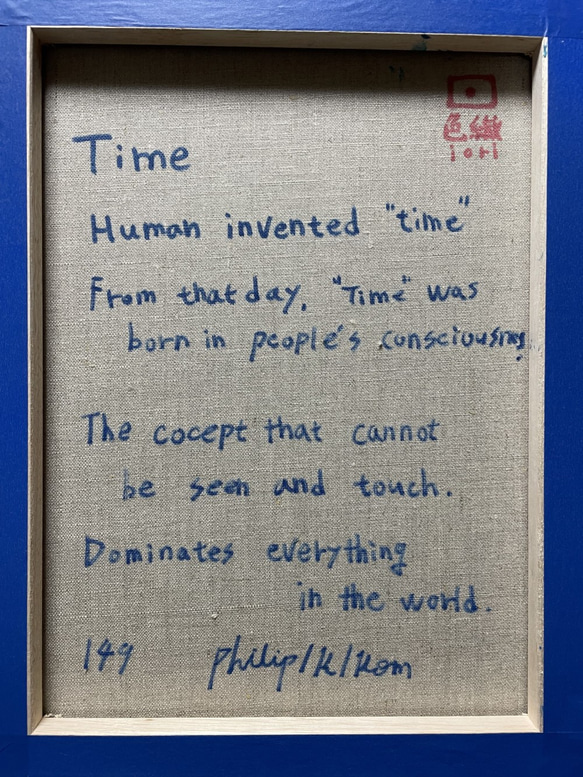 色織
iori
Time
Human invented "time"
From that day, "Time" was
born in people's consciousness.
The cocept that cannot
be seen and touch.
Dominates everything
in the world.
149 philip/k/kom